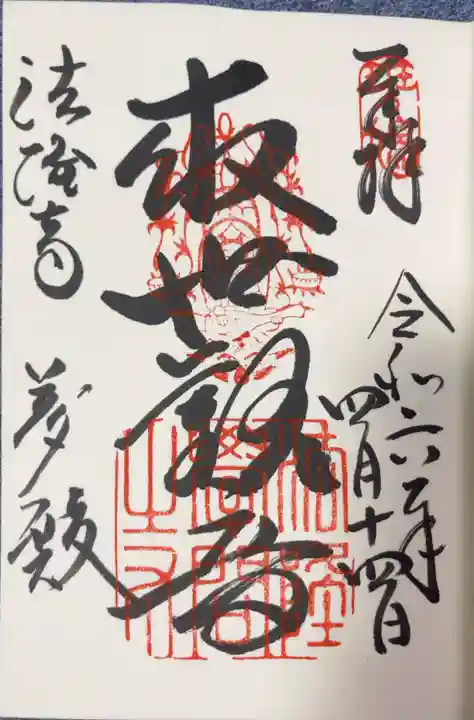 奉拝
令和六年
四月十四日
救世観音
法隆寺
夢殿